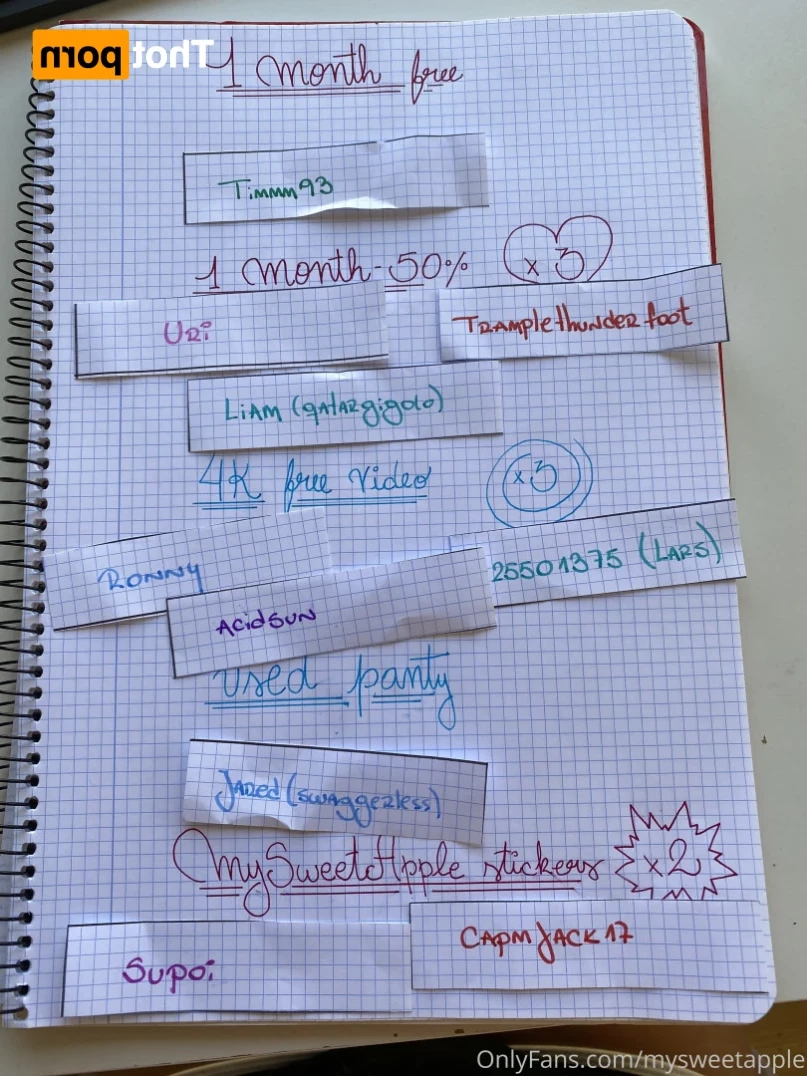 Thot porn
1 month free
Timmm93
1 month - 50% x 3
Uri Tramplethunderfoot
Liam (qatargigolo)
4K free video x3
Ronny 25501375 (Lars)
AcidSun
Used panty
Jared (swaggerless)
MySweetApple stickers x2
Supoi CapmJack17
OnlyFans.com/mysweetapple